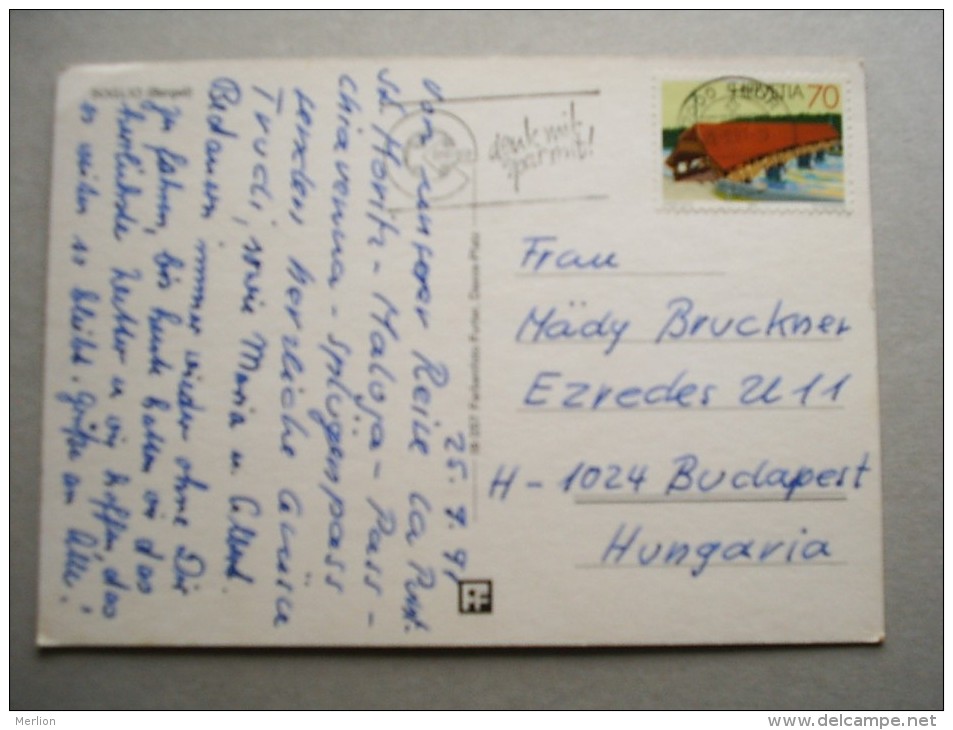 SOGLIO (Bergell)
25. 9. 91
von unserer Reise La Punt-
St. Moritz - Maloja-Pass -
Chiavenna - Splügenpass
senden herzliche Grüsse
Trudi, sowie Maria u.
Bedauern immer wieder ohne Dir
zu fahren, bis heute hatten wir das
herrlichste Wetter u wir hoffen, das
es weiter so bleibt. Grüße an Alle!
Farbenfoto Furter, Davos-Platz
denk mit
spar mit!
HELVETIA 70
Frau
Mädy Bruckner
Ezredes u 11
H-1024 Budapest
Hungaria
Merlion
www.delcampe.net